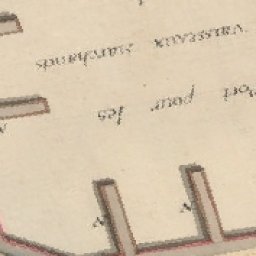 Port pour les
vaisseaux marchands